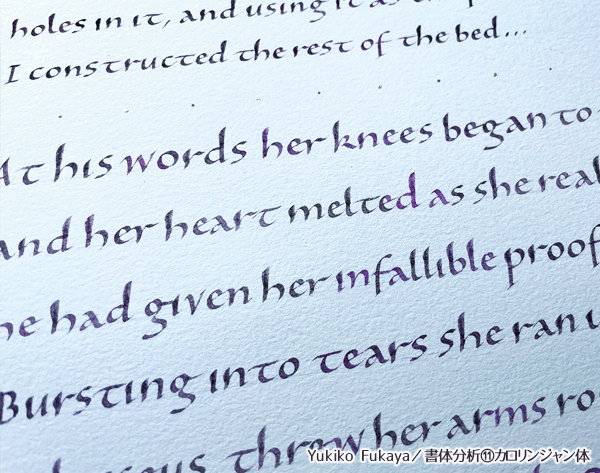 holes in it, and using it as
I constructed the rest of the bed...
At his words her knees began to
and her heart melted as she real
he had given her infallible proof
Bursting into tears she ran
threw her arms ro
Yukiko Fukaya／書体分析⑪カロリンジャン体